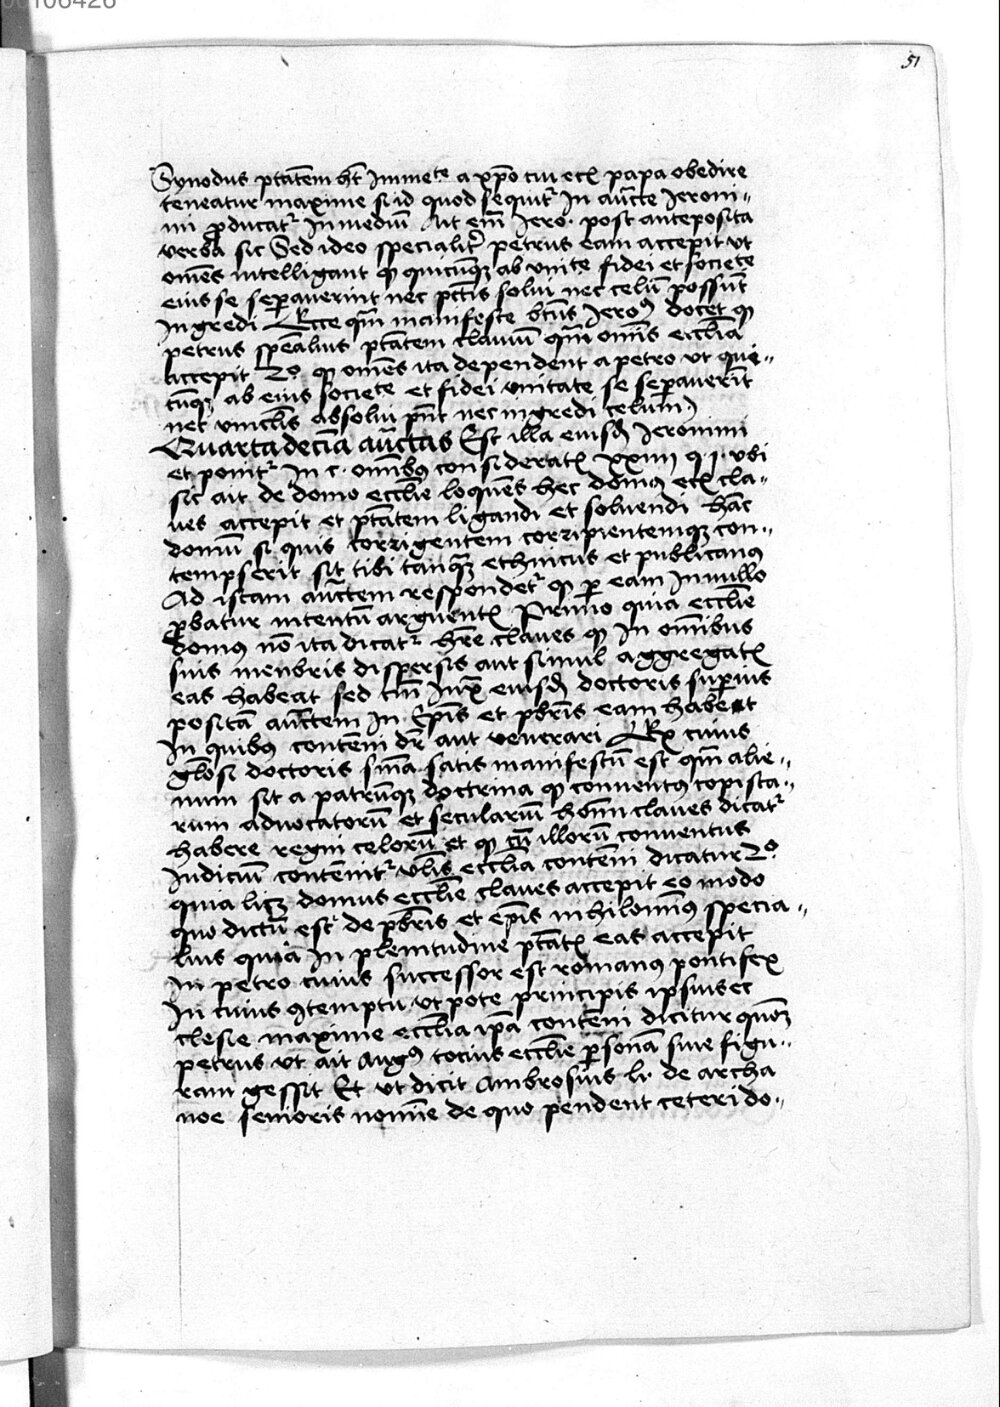 00106426
51
Synodus ptātem hēt Immete a xp̄o cui etc̄ papa obedire
teneatur maxime si id quod sequit᷑ In auc̄te Ieroni„
mi ꝓducat᷑ In mediū Ait em̄ Iero. post anteposita
verba sic Sed ideo specialit᷑ petrus eam accepit vt
om̄es intelligant ꝙ quicūqꝫ ab vnite fidei et societe
eius se seꝑauerint nec pctīs solui nec celū possūt
Ingredi Ecce qm̄ manifeste bt̄us Ieroꝰ docet ꝙ
petrus spēalius ptātem clauiū qm̄ om̄is eccl̄ia
accepit 2º ꝙ om̄es ita dependent a petro vt qui„
cūqꝫ ab eius societe et fidei vnitate se seꝑauerīt
nec vinclīs absolui pn̄t nec ingredi celum)
Quartadecīa auc̄tas Est illa eiusd̄ Ieronimi
et ponit᷑ In c. om̄ibꝰ consideratꝭ xxiiii q. j. vbi
sic ait de domo eccl̄ie loquēs hec domꝰ etc̄ cla„
ues accepit et ptātem ligandi et soluendi hāc
domū si quis corrigentem corripientemqꝫ con„
tempserit sit tibi tanqꝫ ethnicus et publicanꝰ
Ad istam auc̄tem respondet᷑ ꝙ ꝑ eam In nullo
ꝓbatur intentū arguentꝭ Primo quia eccl̄ie
domꝰ nō ita dicat᷑ hr̄e claues ꝙ In om̄ibus
suis menbris dispersis aut simul aggregatꝭ
eas habeat sed tm̄ Iuxͣ eiusd̄ doctoris superius
positā auc̄tem In ep̄is et pbr̄is eam habent
In quibꝰ contēni dr̄ aut venerari Ex cuius
glosi doctoris sm̄a satis manifestū est qm̄ alie„
num sit a patrūqꝫ doctrina ꝙ conuentꝰ copista„
rum aduocatorū et seculariū hom̄ claues dicat᷑
habere regni celorū et ꝙ cū illorū conuentus
Iudiciū contēnit᷑ vl̄is eccl̄ia contēni dicatur 2º
quia licꝫ domus eccl̄ie claues accepit eo modo
quo dictū est de pbr̄is et ep̄is nihilomīꝰ specia„
lius quia In plenitudine ptātꝭ eas accepit
In petro cuius successor est romanꝰ pontifex
In cuius ꝯtemptu vt pote principis ipsius ec
clesie maxime eccl̄ia ip̄a contēni dicitur quoꝫ
petrus vt ait Augꝰ tocius eccl̄ie ꝑsonā siue figu„
ram gessit Et vt dicit Ambrosius li. de archa
noe senioris nomīe de quo pendent ceteri do„